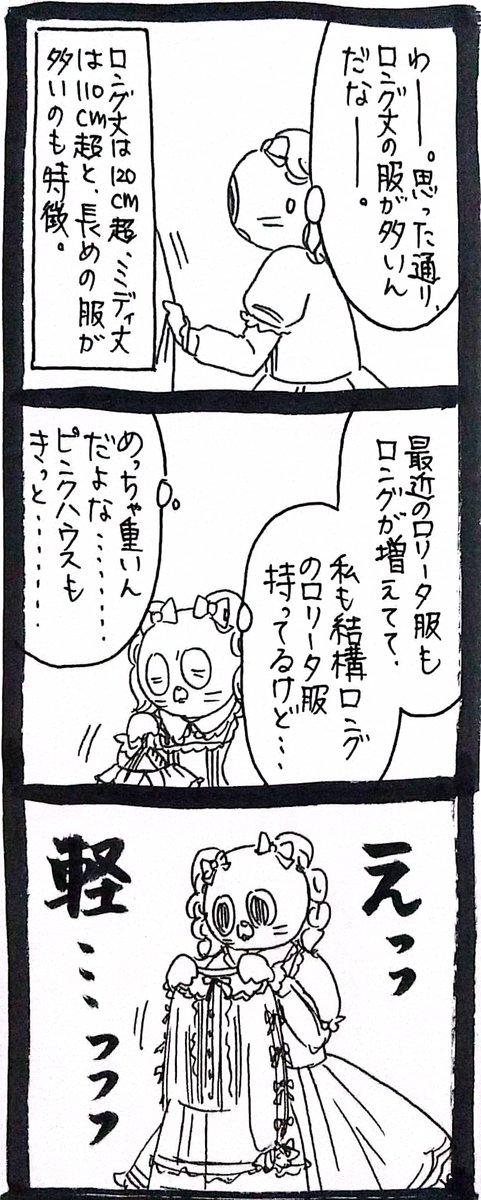 わーー。思った通り、
ロング丈の服が多いん
だなーー。
ロング丈は120cm超、ミディ丈
は110cm超と、長めの服が
多いのも特徴。
最近のロリータ服も
ロングが増えてて、
私も結構ロング
のロリータ服
持ってるけど…
めっちゃ重いん
だよな………
ピンクハウスも
きっと………
えっっ
軽…っっっ